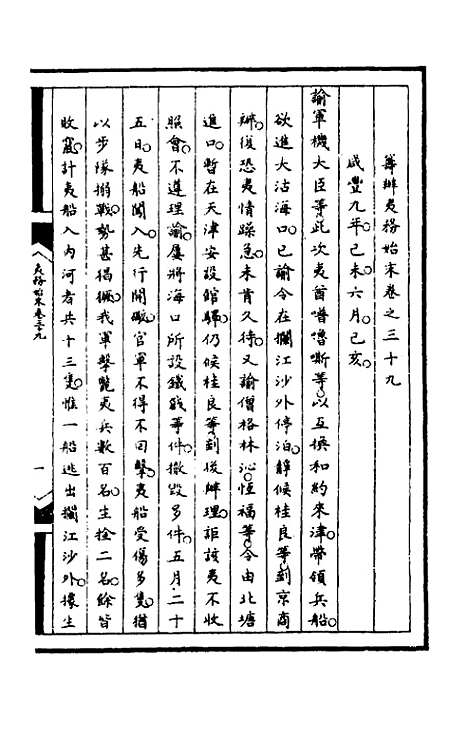 籌辦夷務始末卷之三十九
咸豐九年己未六月己亥。
諭軍機大臣等此次夷酋嚕嘶等。以互換和約來津。帶領兵船。
欲進大沽海口。已諭令在攔江沙外停泊。靜候桂良等到京商
辦。後恐夷情躁急。未肯久待。又諭僧格林沁。恆福等。令由北塘
進口。暫在天津安設館驛。仍候桂良等到後辦理。詎該夷不收
照會。不遵理諭。屢將海口所設鐵戧等件。撤毀多件。五月二十
五日。夷船闖入。先行開礮。官軍不得不回擊。夷船受傷多隻。猶
以步隊搦戰。勢甚猖獗。我軍擊斃夷兵數百名。生擒二名。餘皆
收竄。計夷船入內河者共十三隻。惟一船逃出攔江沙外。據生
夷務始末卷三十九
一